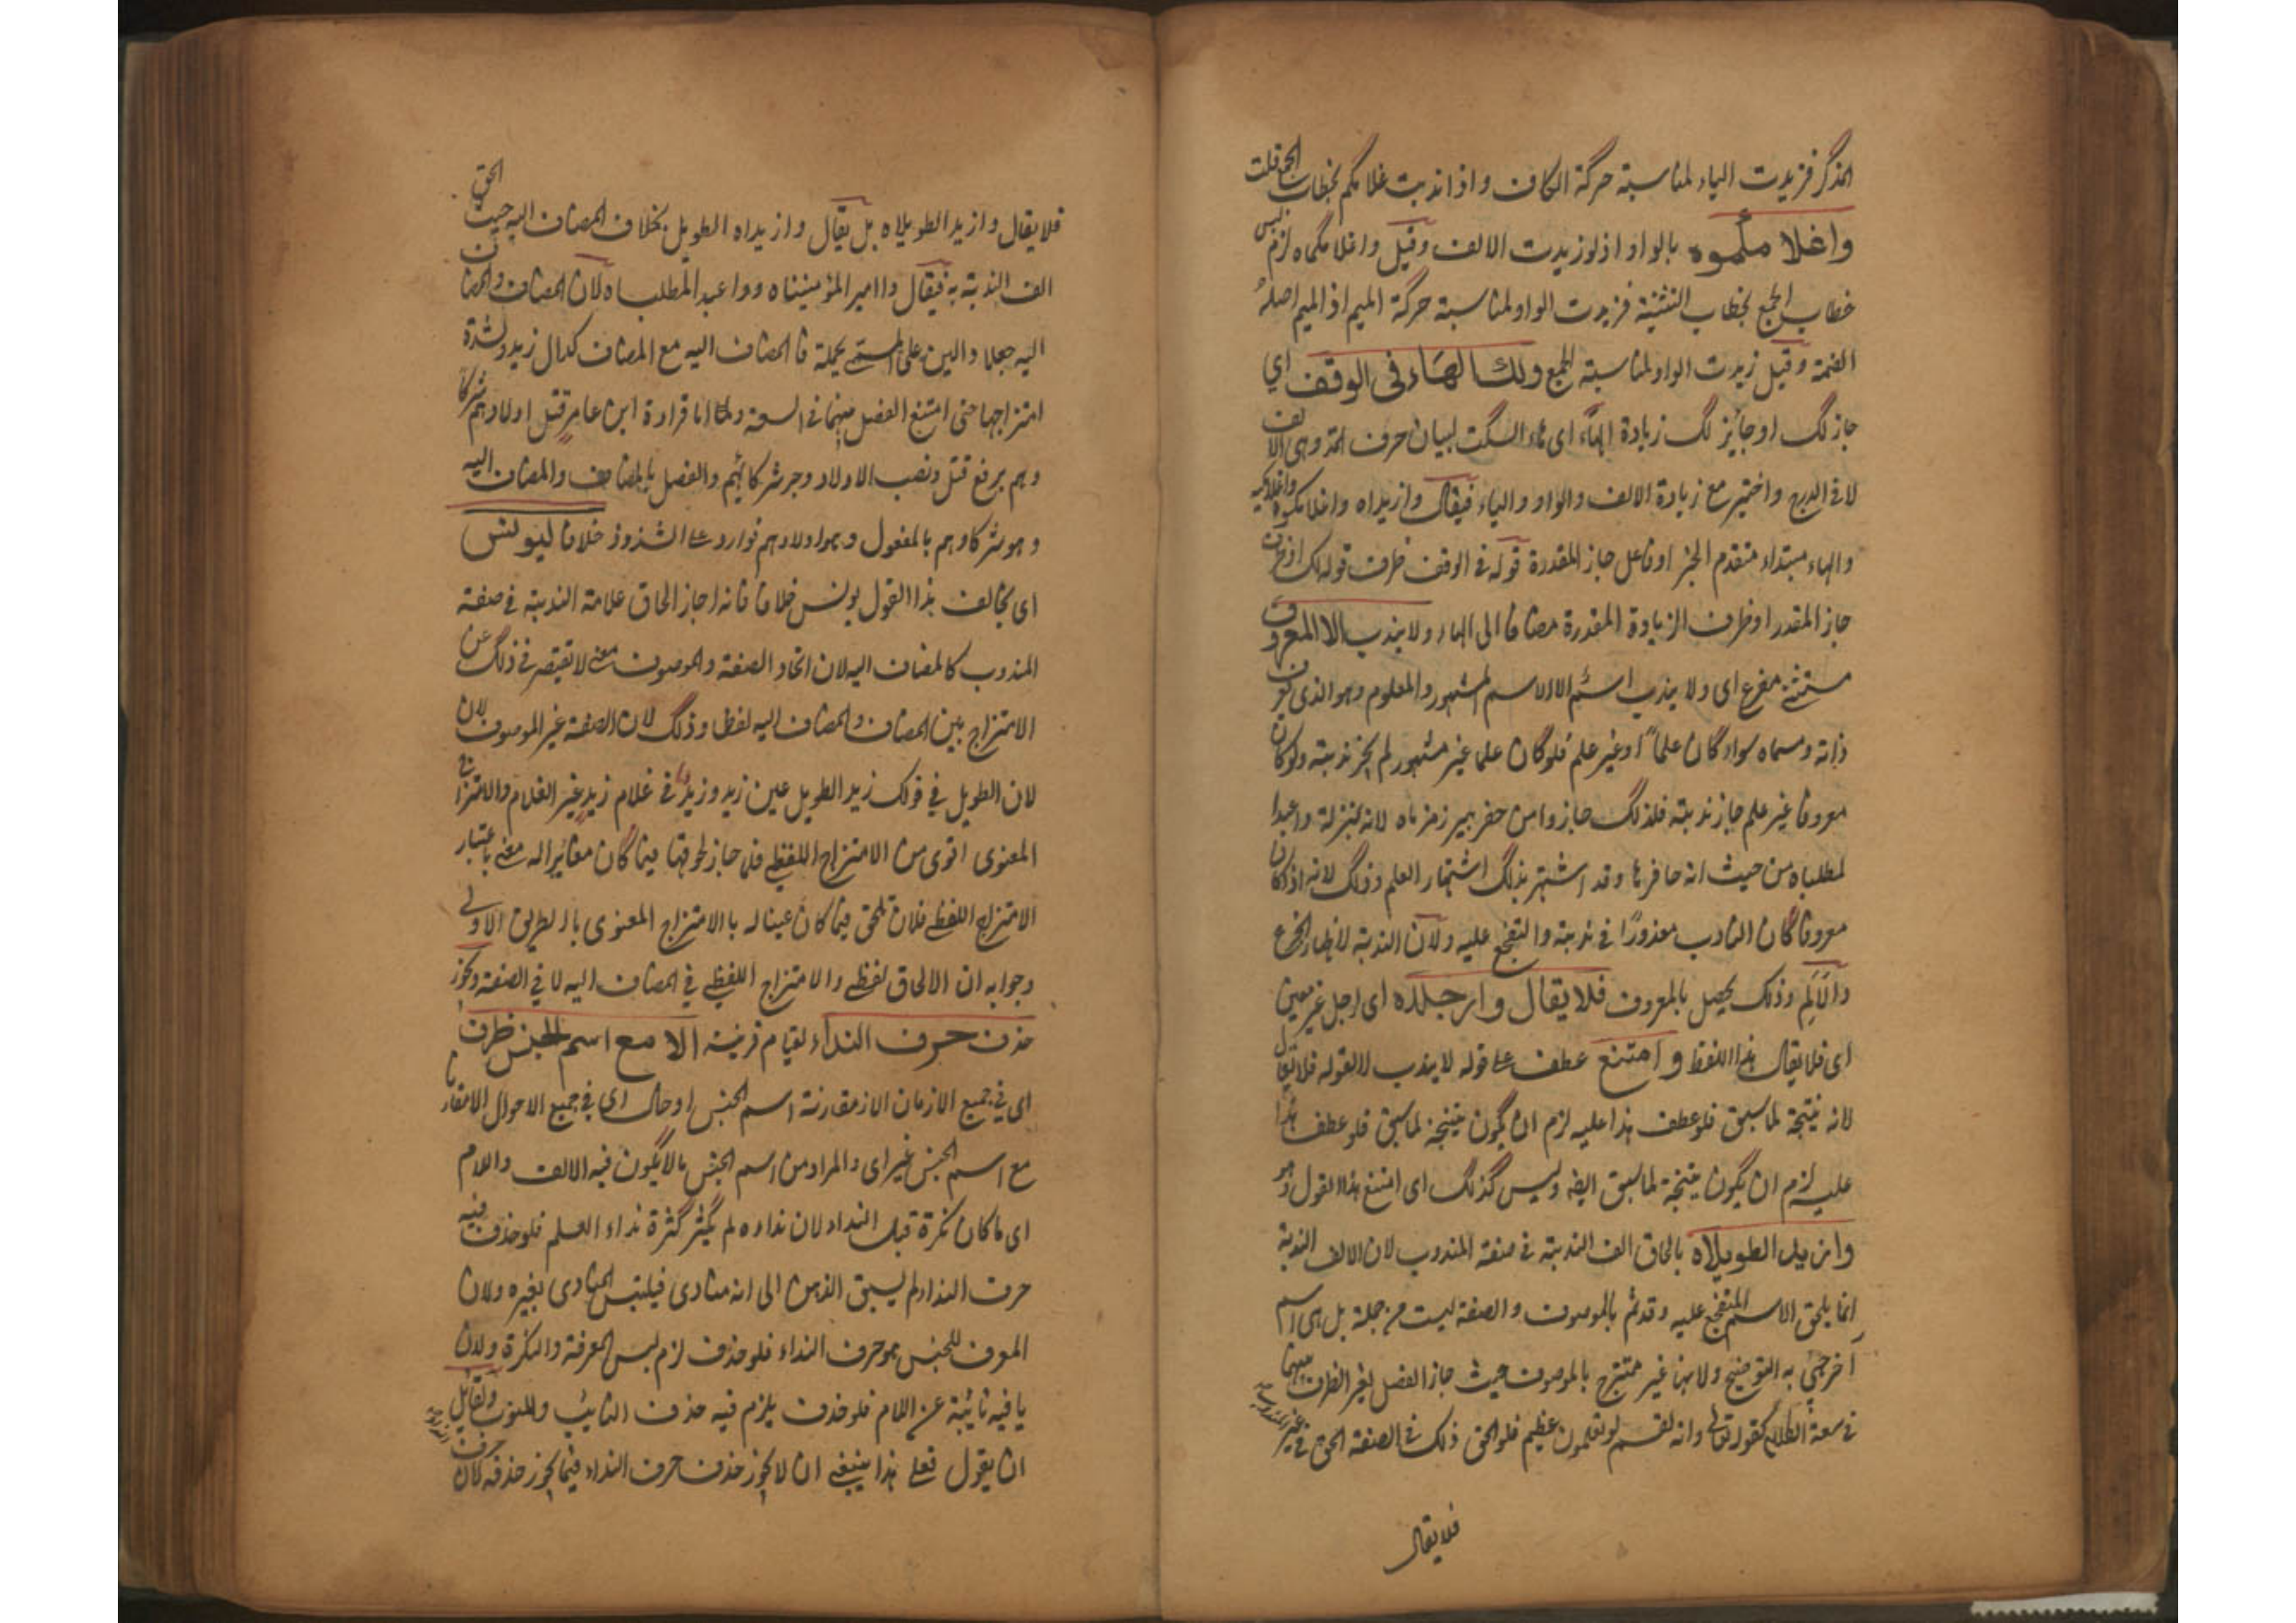 المذكر فزيدت الياء لمناسبة حركة الكاف واذا ندبت غلامكم بخطاب الجمع قلت
واغلامكموه بالواو اذ لو زيدت الالف وقيل واغلامكماه لزم لبس
خطاب الجمع بخطاب التثنية فزيدت الواو لمناسبة حركة الميم اذ الميم اصله
الضمة وقيل زيدت الواو لمناسبة الجمع ولك الهاء فى الوقف اي
جاز لك او جائز لك زيادة الهاء اى هاء السكت لبيان حرف المد وهى الالف
لا فى الدرج واختير مع زيادة الالف والواو والياء فيقال وازيداه واغلامكموه واغلامكيه
والهاء مبتداء متقدم الخبر او فاعل جاز المقدرة قوله فى الوقف ظرف قوله لك او ظرف
جاز المقدر او ظرف الزيادة المقدرة مضافا الى الهاء ولا يندب الا المعروف
مستثنى مفرغ اى ولا يندب اسم الا الاسم المشهور والمعلوم وهو الذى عرف
ذاته ومسماه سواء كان علماً او غير علم فلو كان علما غير مشهور لم يجز ندبته ولو كان
معروفا غير علم جاز ندبته فلذلك جاز وامن حفر بير زمزماه لانه بمنزلة واعبدا
لمطلباه من حيث انه حافرها وقد اشتهر بذلك اشتهار العلم وذلك لانه اذا كان
معروفا كان النادب معذورًا فى ندبته والتفجع عليه ولان الندبة لاظهار الجزع
والالم وذلك يحصل بالمعروف فلا يقال وارجلاه اى رجل غير معين
اى فلا يقال هذا اللفظ وامتنع عطف على قوله لا يندب لا لقوله فلا يقال
لانه نتيجة لما سبق فلو عطف هذا عليه لزم ان يكون نتيجة لما سبق فلو عطف هذا
عليه لزم ان يكون نتيجة لما سبق ايضا وليس كذلك اى امتنع هذا القول وهو
وازيد الطويلاه بالحاق الف الندبة فى صفة المندوب لان الالف الندبة
انما يلحق الاسم المتفجع عليه وقد تم بالموصوف والصفة ليست من جملة بل هى اسم
آخر جئ به التوضيح ولانها غير ممتزج بالموصوف حيث جاز الفصل بغير الظرف بينهما
فى سعة الكلام كقوله تعالى وانه لقسم لو تعلمون عظيم فلو الحق ذلك فى الصفة الحق فى غير المندوب
فلا يقال
فلا يقال وازيد الطويلاه بل يقال وازيداه الطويل بخلاف المضاف اليه حيث الحق
الف الندبة به فيقال واامير المؤمنيناه وواعبد المطلباه لان المضاف والمضاف
اليه جعلا دالين على المسمى بجملة فالمضاف اليه مع المضاف كدال زيد ولشدة
امتزاجهما حتى امتنع الفصل بينهما فى السعة واما قراءة ابن عامر قتل اولادهم شركا
ئهم برفع قتل ونصب الاولاد وجر شركائهم والفصل بالمضاف والمضاف اليه
وهو شركاوهم بالمفعول وهو اولادهم فوارد على الشذوذ خلافا ليونس
اى يخالف هذا القول يونس خلافا فانه اجاز الحاق علامة الندبة فى صفة
المندوب كالمضاف اليه لان اتحاد الصفة والموصوف معنى لا تقتصر فى ذلك عن
الامتزاج بين المضاف والمضاف اليه لفظا وذلك لان الصفة غير الموصوف لان
لان الطويل فى قولك زيد الطويل عين زيد وزيد فى غلام زيد غير الغلام والامتزاج
المعنوى اقوى من الامتزاج اللفظى فلما جاز لحوقها فيما كان مغايرا له معنى باعتبار
الامتزاج اللفظى فلان تلحق فيما كان عينا له بالامتزاج المعنوى بالطريق الاولى
وجوابه ان الالحاق لفظى والامتزاج اللفظى فى المضاف اليه لا فى الصفة ويجوز
حذف حرف النداء لقيام قرينة الا مع اسم الجنس ظرف
اى فى جميع الازمان الا زمقارنة اسم الجنس او حال اى فى جميع الاحوال الا مقارنا
مع اسم الجنس غير اى والمراد من اسم الجنس ما لا يكون فيه الالف واللام
اى ما كان نكرة قبل النداء لان نداءه لم يكثر كثرة نداء العلم فلو حذف فيه
حرف النداء لم يسبق الذهن الى انه منادى فيلتبس المنادى بغيره ولان
المعرف للجنس هو حرف النداء فلو حذف لزم لبس المعرفة والنكرة ولان
يا فيه نائبة عن اللام فلو حذف يلزم فيه حذف النائب والمنوب ولقائل
ان يقول فعلى هذا ينبغى ان لا يجوز حذف حرف النداء فيما يجوز حذفه لان حرف